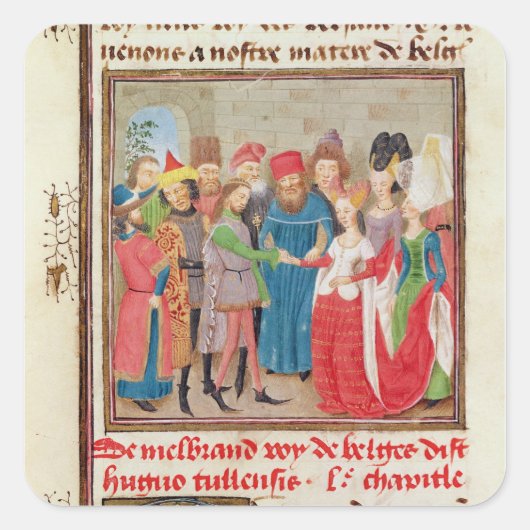 venons a nostre matere de belges
De melbrand roy de belges dist
huguo tullensis · l.e chapitle